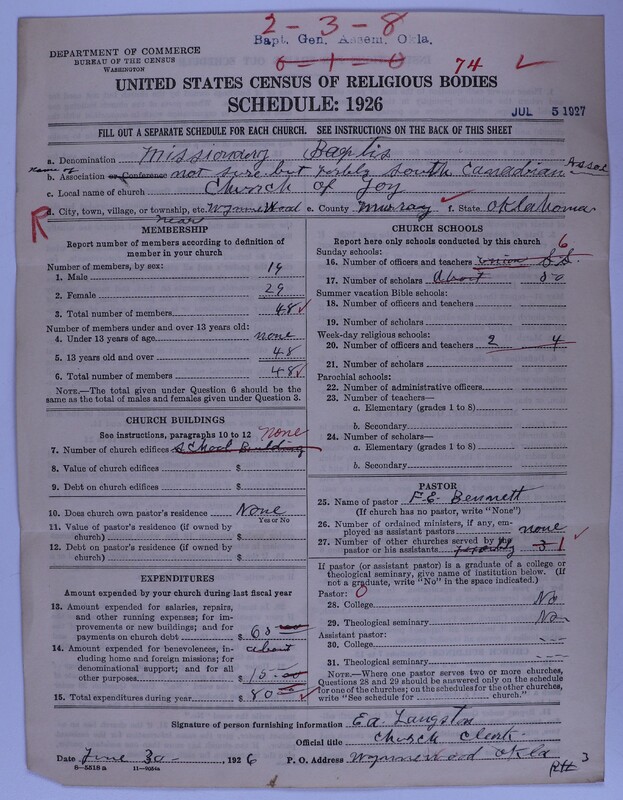 2-3-8
Bapt. Gen. Assem. Okla.
0-1-0
DEPARTMENT OF COMMERCE
BUREAU OF THE CENSUS
WASHINGTON
74
UNITED STATES CENSUS OF RELIGIOUS BODIES
SCHEDULE: 1926
JUL 5 1927
FILL OUT A SEPARATE SCHEDULE FOR EACH CHURCH. SEE INSTRUCTIONS ON THE BACK OF THIS SHEET
a. Denomination Missionary Baptis
name of
b. Association or Conference not sure but south Canadian Assoc
c. Local name of church Church of Joy
R
d. City, town, village, or township, etc. near Wynnewood e. County Murray f. State Oklahoma
MEMBERSHIP
Report number of members according to definition of member in your church
Number of members, by sex:
1. Male 19
2. Female 29
3. Total number of members 48
Number of members under and over 13 years old:
4. Under 13 years of age none
5. 13 years old and over 48
6. Total number of members 48
NOTE.—The total given under Question 6 should be the
same as the total of males and females given under Question 3.
CHURCH BUILDINGS
See instructions, paragraphs 10 to 12 none
7. Number of church edifices School Building
8. Value of church edifices $
9. Debt on church edifices $
10. Does church own pastor's residence None
Yes or No
11. Value of pastor's residence (if owned by
church) $
12. Debt on pastor's residence (if owned by
church) $
EXPENDITURES
Amount expended by your church during last fiscal year
13. Amount expended for salaries, repairs,
and other running expenses; for im-
provements or new buildings; and for
payments on church debt $ 65 00
14. Amount expended for benevolences, about
including home and foreign missions; for
denominational support; and for all
other purposes $ 15.00
15. Total expenditures during year $ 80 00
CHURCH SCHOOLS
Report here only schools conducted by this church
Sunday schools: 6
16. Number of officers and teachers union S.S.
17. Number of scholars about 50
Summer vacation Bible schools:
18. Number of officers and teachers
19. Number of scholars
Week-day religious schools:
20. Number of officers and teachers 2 4
21. Number of scholars
Parochial schools:
22. Number of administrative officers
23. Number of teachers—
a. Elementary (grades 1 to 8)
b. Secondary
24. Number of scholars—
a. Elementary (grades 1 to 8)
b. Secondary
PASTOR
25. Name of pastor F.E. Bennett
(If church has no pastor, write "None")
26. Number of ordained ministers, if any, em-
ployed as assistant pastors none
27. Number of other churches served by
pastor or his assistants 3 1
If pastor (or assistant pastor) is a graduate of a college or
theological seminary, give name of institution below. (If
not a graduate, write "No" in the space indicated.)
Pastor: 0
28. College No
29. Theological seminary No
Assistant pastor:
30. College
31. Theological seminary
NOTE.—Where one pastor serves two or more churches,
Questions 28 and 29 should be answered only on the schedule
for one of the churches; on the schedules for the other churches,
write "See schedule for church."
Signature of person furnishing information Ed. Langston
Official title Church Clerk
Date June 30 1926 P. O. Address Wynnewood Okla
8—5518 a 11—9054a
3